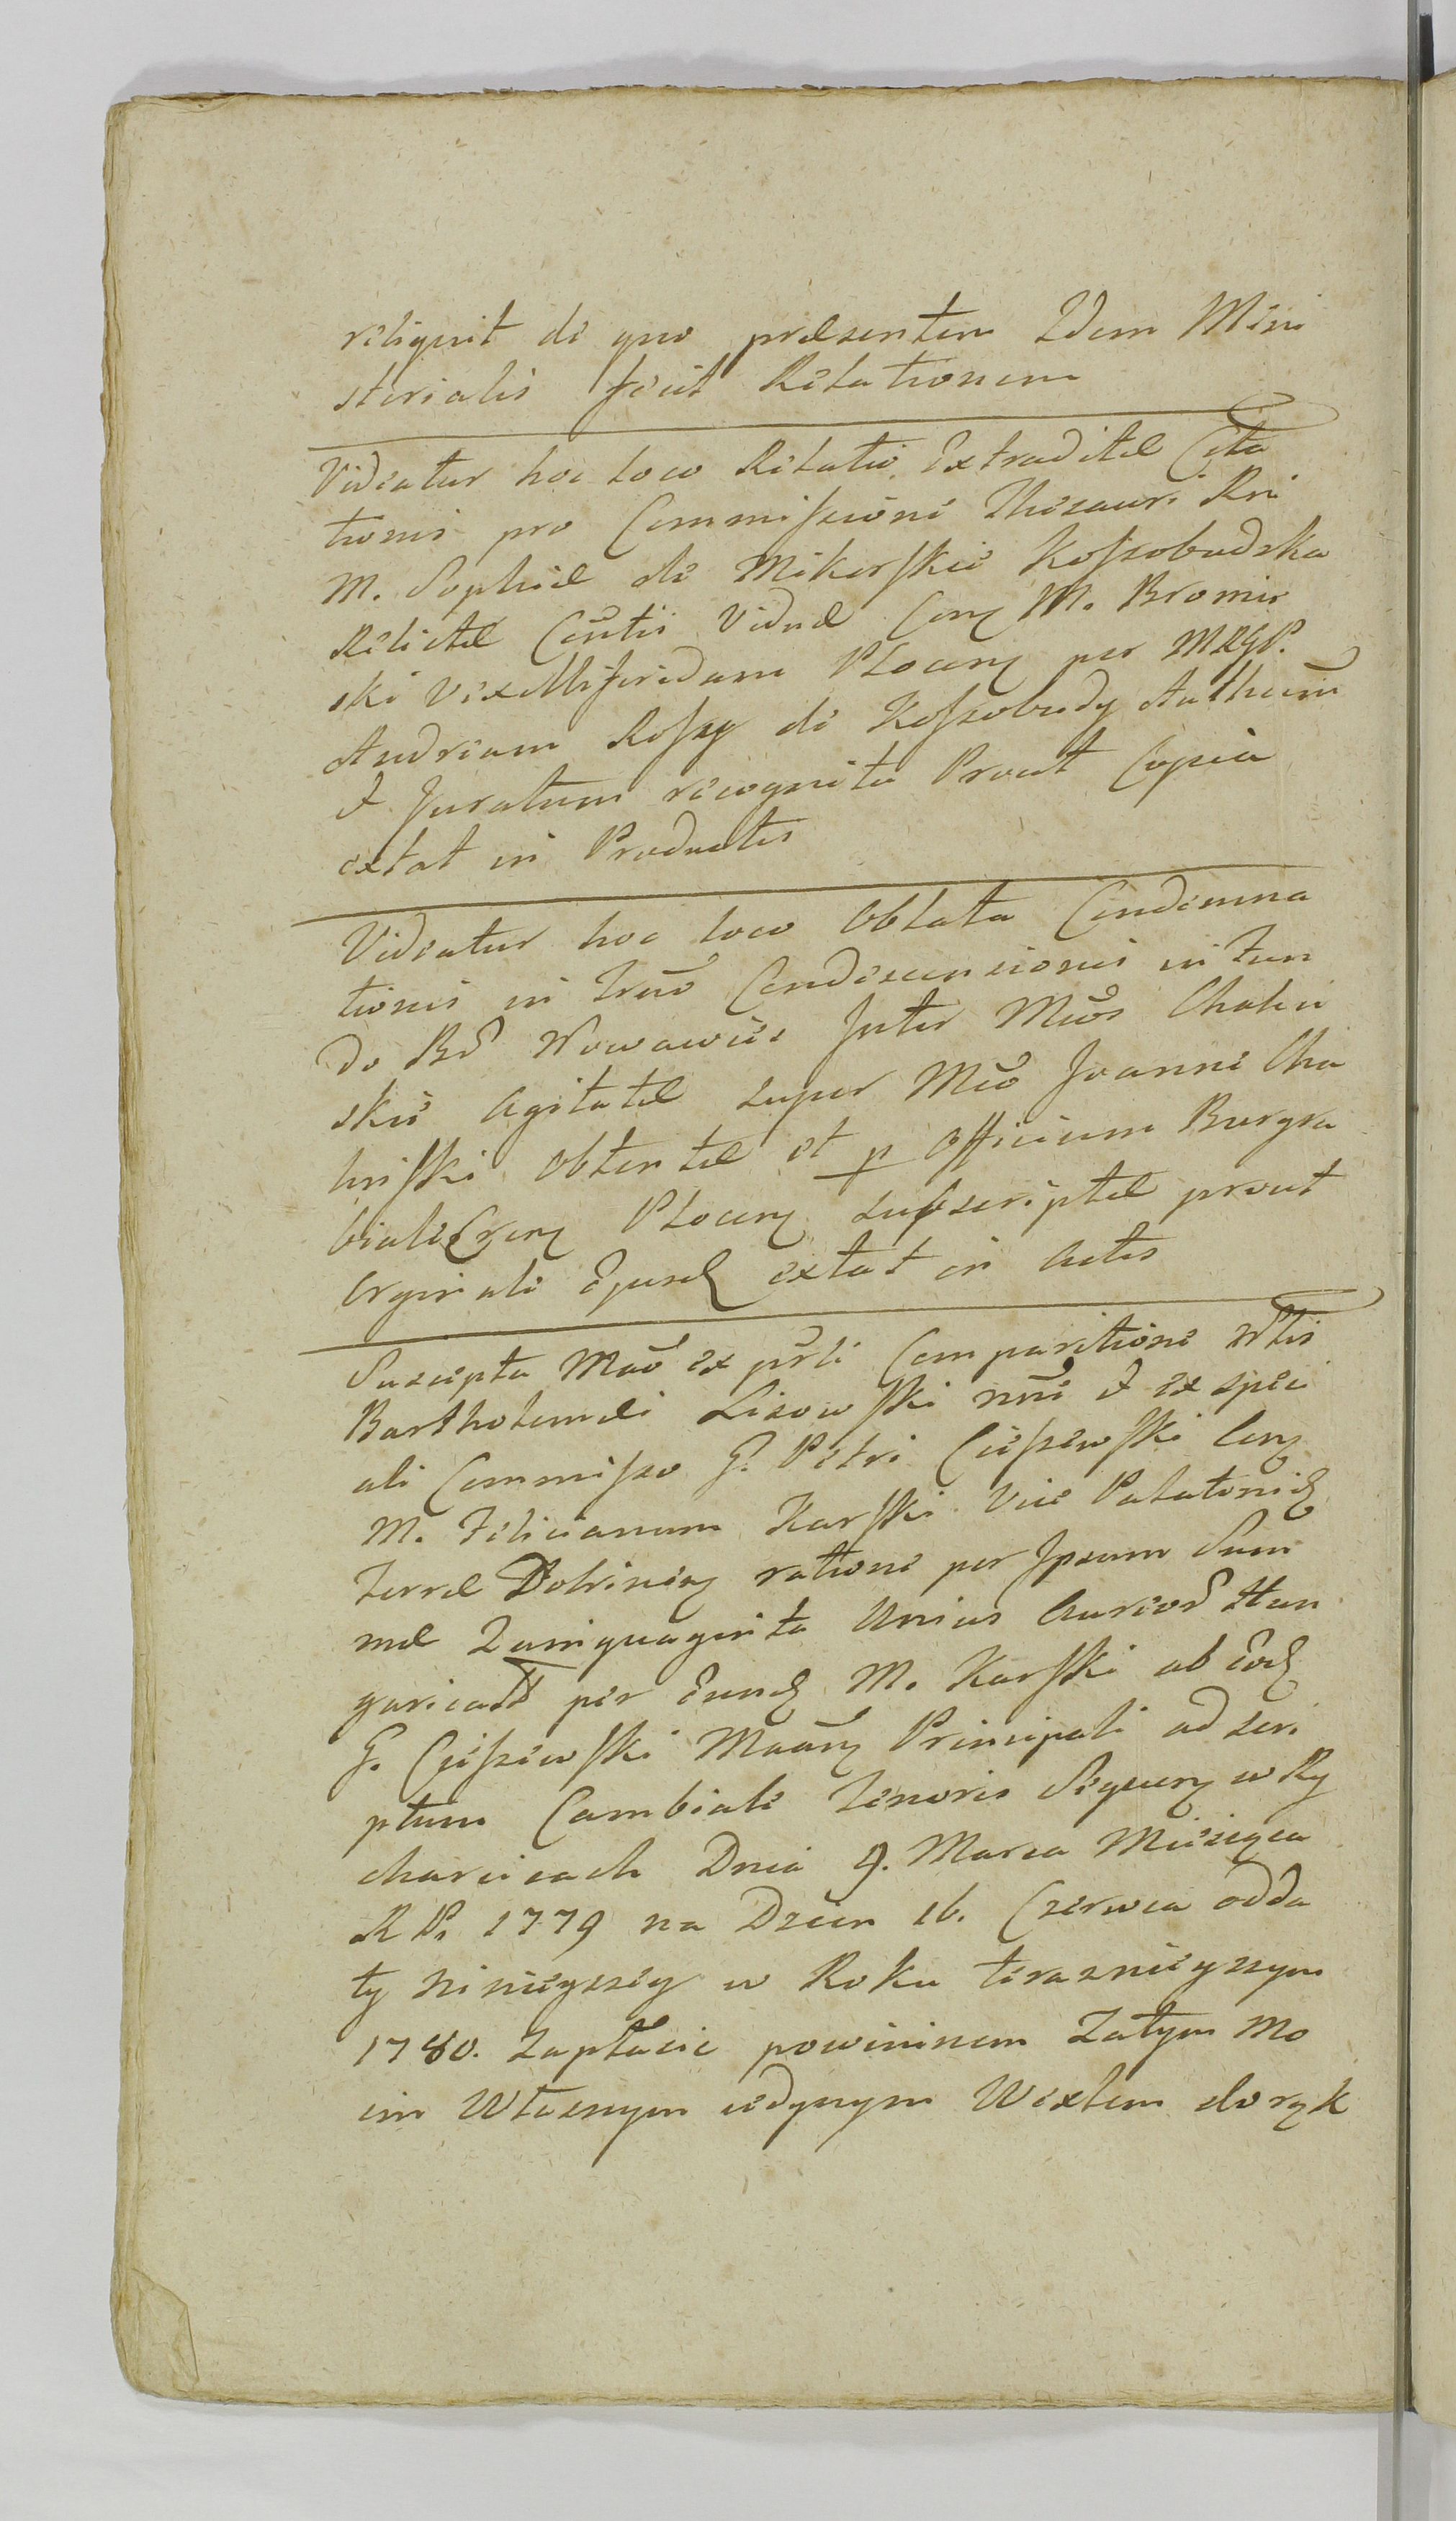 reliquit de quo præsentem Idem Mini
sterialis fecit Relationem
Videatur hoc loco Relatio Extraditæ Cita
tionis pro Commissione Thesauri Rni
M. Sophiæ de Mikorskie Kossobudzka
Relictæ Viduæ M. Bromir
ski Vexilliferidam Plocen per MRGP.
Andream Rossey de Kossobudy Authen
et Juratum recognita Prout Copia
extat in Productis
Videatur hoc loco Oblata Condemna
tionis in Condescensionis in Fun
do Bo Nowawies Inter Mcos Chalin
skie Agitatæ super Mco Joanne Cha
linski Obtentæ et p Officium Burgra
biale Plocen subscriptæ prout
Orginale Ejusd extat in Actis
Suscepta Mao ex prli Comparitione
Bartholomei Lisowski nne et ex speci
ali Commisso G. Petri Cieszewski Con
M. Felicianum Karski Vice Palatinid
Terræ Dobrinen ratione per Ipsum Sum
mæ Quinquaginta Unius Aureor Hun
garical per Eund M. Karski ab Eod
G. Cieszewski Principali ad scri
ptum Cambiale Tenoris Sequen w Ry
charcicach Dnia 9. Marca Miesięca
R P. 1779 na Dzien 16. Czerwca odda
ty ninieyszey w Roku teraznieyszym
1780. Zapłacic powininem Zatym Mo
im Własnym iedynym Wexlem do rąk